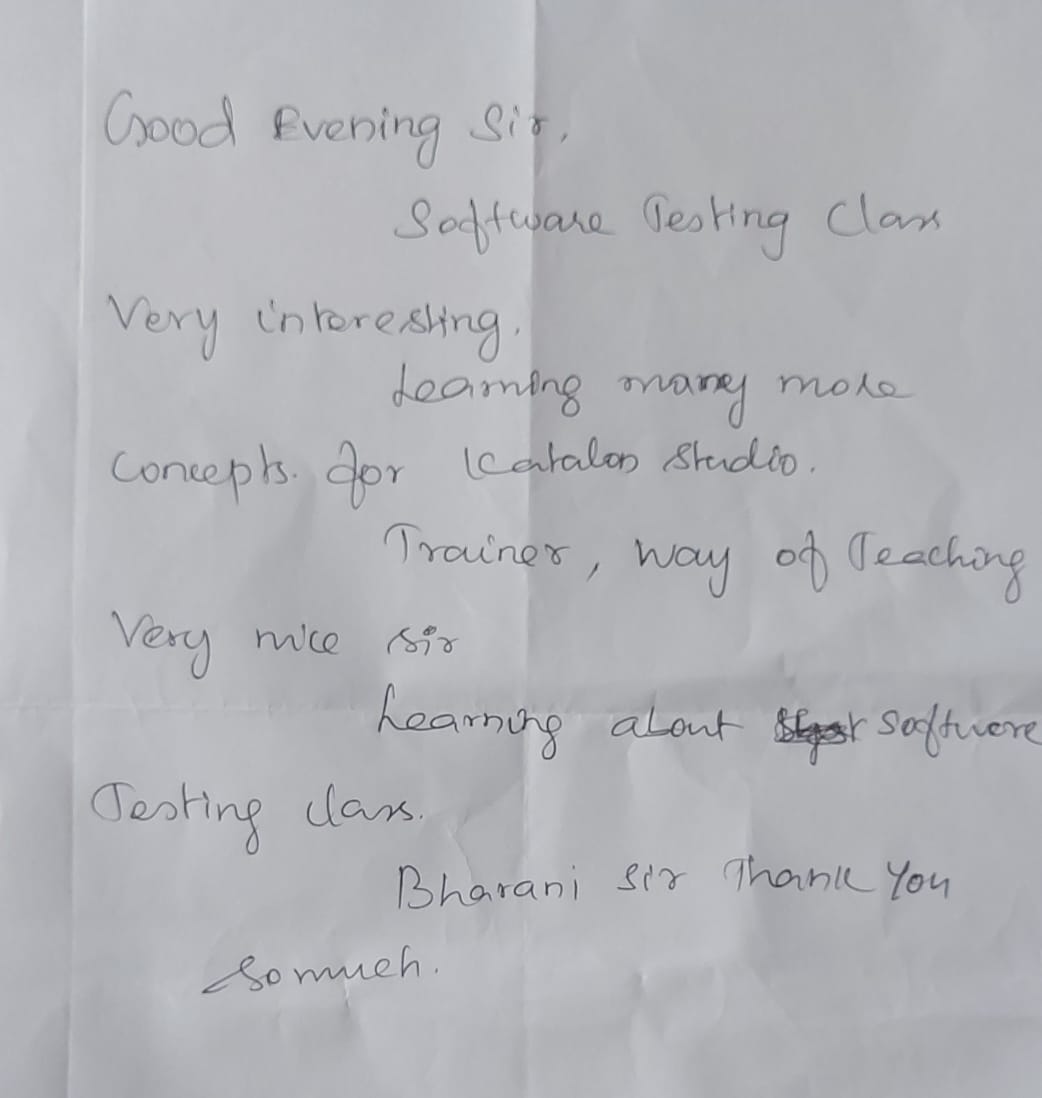 Good Evening Sir,
Software Testing Class
Very interesting.
Learning many more
concepts. for Katalon Studio.
Trainer, way of Teaching
Very nice sir
Learning about softwere
Testing class.
Bharani sir Thank You
so much.